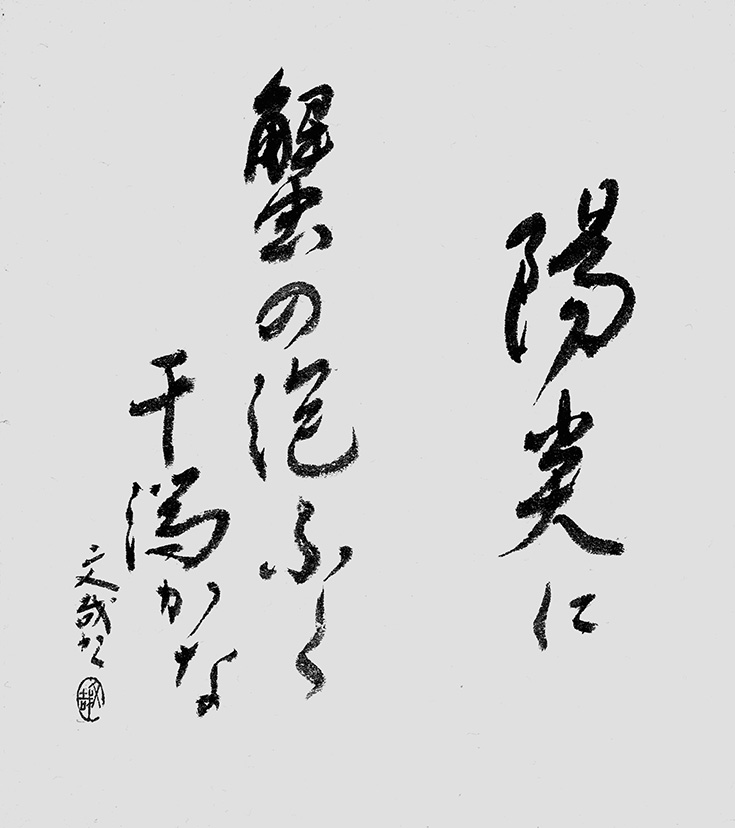 陽炎に
蟹の泡ふく
干潟かな